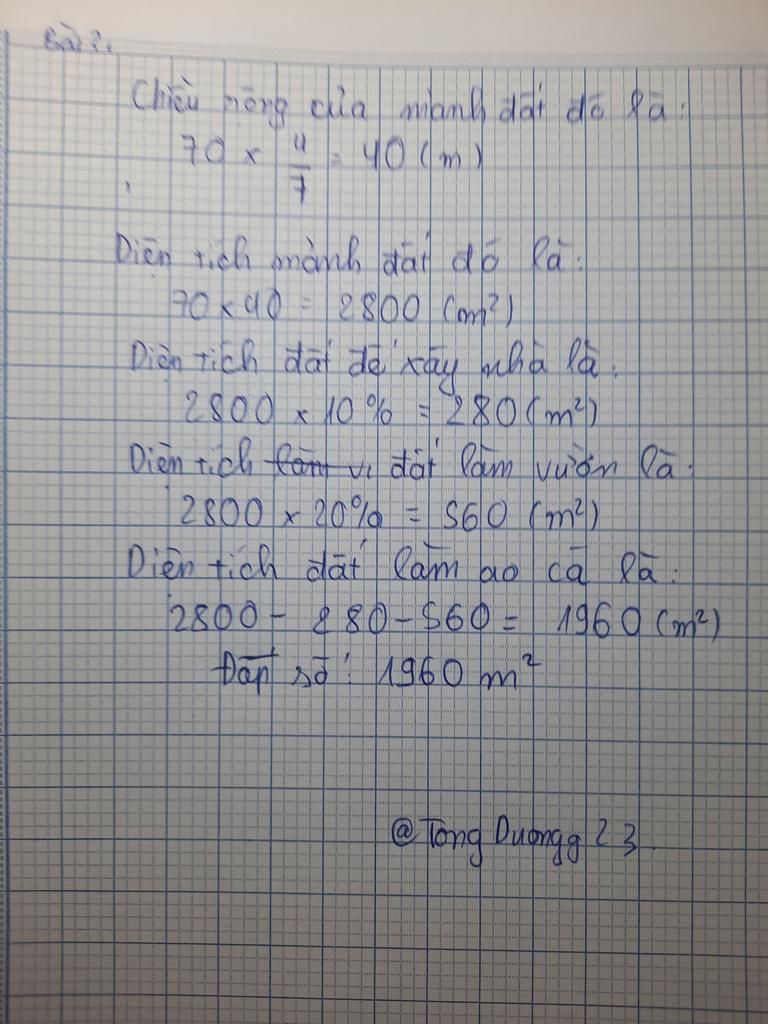 Bài 2:
Chiều rộng của mảnh đất đó là:
70 × 4/7 = 40 (m)
Diện tích mảnh đất đó là:
70 × 40 = 2800 (m²)
Diện tích đất để xây nhà là:
2800 × 10% = 280 (m²)
Diện tích đất làm vườn là:
2800 × 20% = 560 (m²)
Diện tích đất làm ao cá là:
2800 - 280 - 560 = 1960 (m²)
Đáp số: 1960 m²
@Tong Duongg 23